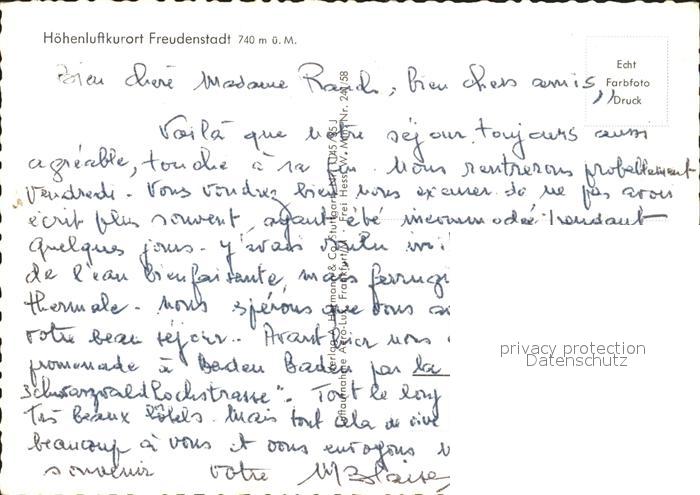 Höhenluftkurort Freudenstadt 740 m ü. M.
Echt
Farbfoto
Druck
Bien chère Madame, bien chers amis,
Voilà que notre séjour, toujours aussi
agréable, touche à sa fin. Nous rentrerons probablement
Vendredi. Vous voudrez bien nous excuser de ne pas avoir
écrit plus souvent, ayant été incommodé pendant
quelques jours. J'avais voulu
de l'eau bienfaisante, mais ferrugi
thermale. Nous espérons que vous
votre beau séjour. Avant hier nous
promenade à Baden Baden par la
Schwarzwald Hochstrasse". Tout le long
Très beaux hôtels. Mais tout cela
beaucoup à vous et vous envoyons
souvenir votre M Blaise
privacy protection
Datenschutz